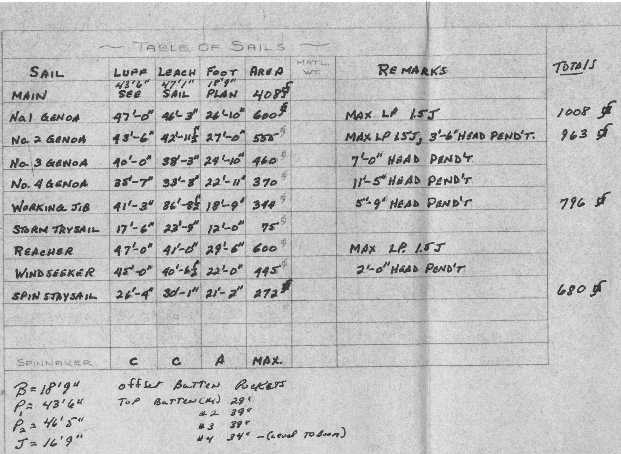 ~ TABLE OF SAILS ~
SAIL LUFF LEACH FOOT AREA MAT'L WT. REMARKS TOTALS
43'6" 47'1" 18'9"
MAIN SEE SAIL PLAN 408
No.1 GENOA 47'-0" 46'-3" 26'-10" 600 MAX LP 1.5J 1008
No. 2 GENOA 43'-6" 27'-0" 555 MAX LP 1.5J, 3'-6" HEAD PEND'T. 963
No. 3 GENOA 40'-0" 38'-3" 24'-10" 460 7'-0" HEAD PEND'T
No. 4 GENOA 35'-7" 33'-8" 22'-11" 370 11'-5" HEAD PEND'T
WORKING JIB 41'-3" 18'-9" 5'-9" HEAD PEND'T 796
STORM TRYSAIL 17'-6" 23'-9" 12'-0" 75
REACHER 47'-0" 41'-0" 29'-6" 600 MAX LP. 1.5J
WINDSEEKER 45'-0" 22'-0" 445 2'-0" HEAD PEND'T
SPIN STAYSAIL 26'-4" 30'-1" 21'-2" 272 680
SPINNAKER C C A MAX.
B = 18'9" offset BATTEN POCKETS
P1 = 43'6" TOP BATTEN (#1) 29"
#2 39"
P2 = 46'5" #3 39"
J = 16'9" #4 34" - (Level TO BOOM)